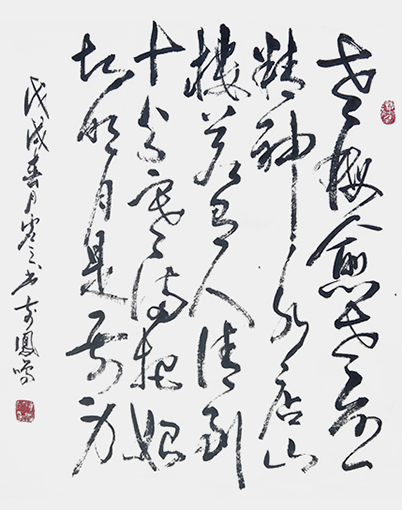 老梅愈老愈
精神水店山
樓若有人清到
十分寒滿把始
知明月是前身
戊戌春月